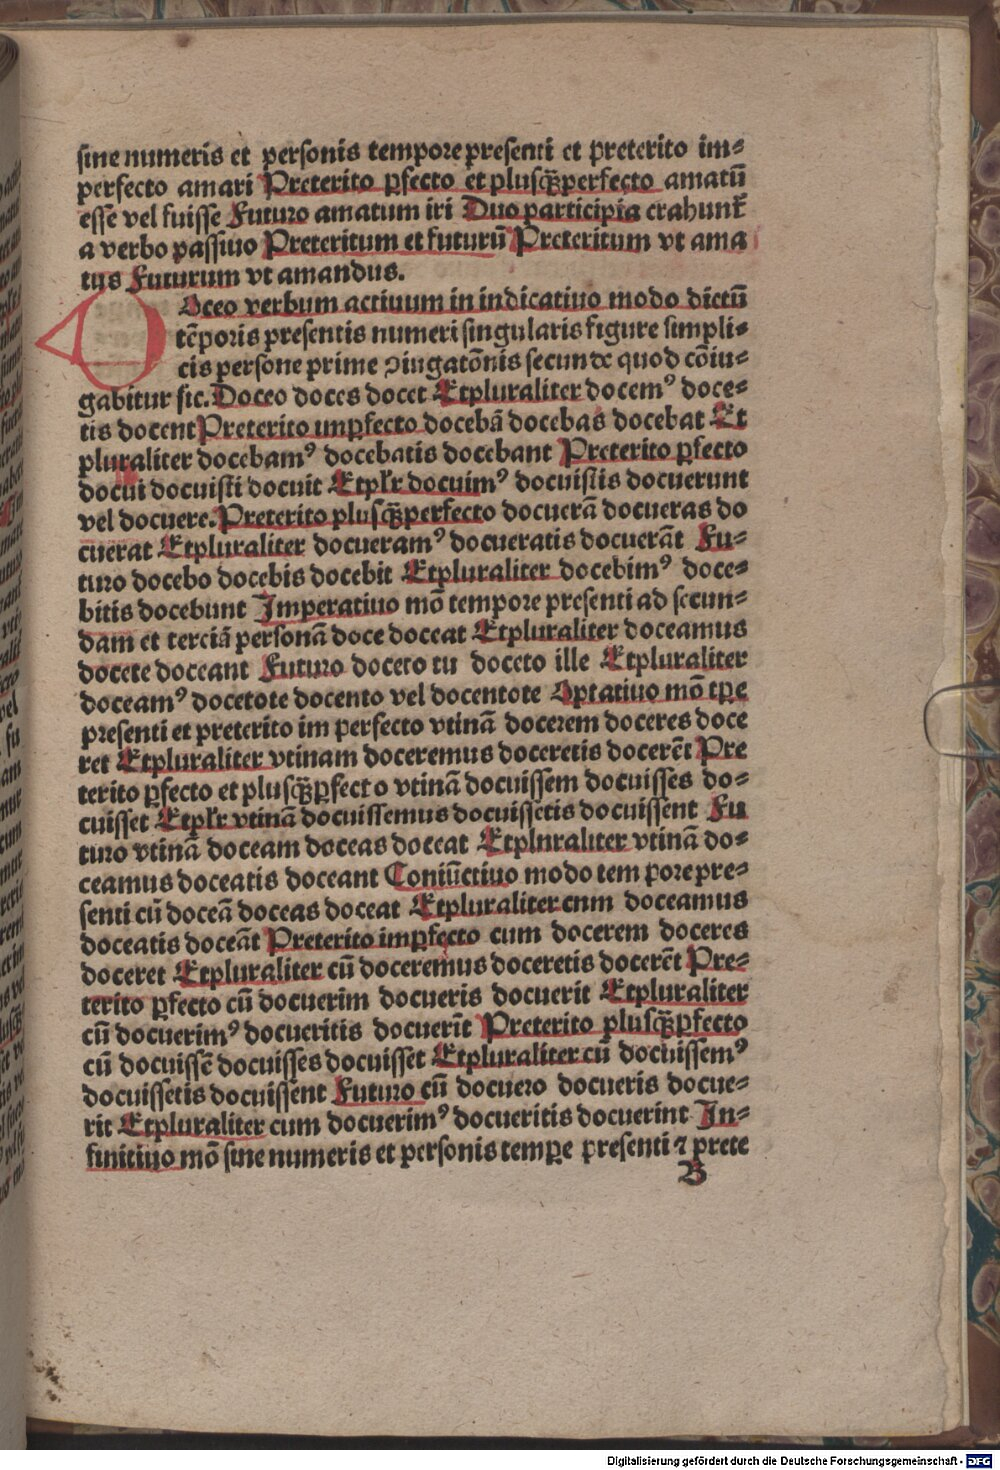 sine numeris et personis tempore presenti et preterito im⸗
perfecto amari Preterito ꝑfecto et plusqꝫperfecto amatū
esse vel fuisse Futuro amatum iri Duo participia trahunt᷑
a verbo passiuo Preteritum et futurū Preteritum vt ama
tus Futurum vt amandus.
DOceo verbum actiuum in indicatiuo modo dictū
tēporis presentis numeri singularis figure simpli⸗
cis persone prime ↄiugatōnis secunde quod cōiu⸗
gabitur sic. Doceo doces docet Etpluraliter docemꝰ doce⸗
tis docent Preterito imꝑfecto docebā docebas docebat Et
pluraliter docebamꝰ docebatis docebant Preterito ꝑfecto
docui docuisti docuit Etplr̄ docuimꝰ docuistis docuerunt
vel docuere. Preterito plusqꝫperfecto docuerā docueras do
cuerat Etpluraliter docueramꝰ docueratis docuerāt Fu⸗
turo docebo docebis docebit Etpluraliter docebimꝰ doce⸗
bitis docebunt Imperatiuo mō tempore presenti ad secun⸗
dam et terciā personā doce doceat Etpluraliter doceamus
docete doceant Futuro doceto tu doceto ille Etpluraliter
doceamꝰ docetote docento vel docentote Optatiuo mō tꝑe
presenti et preterito im perfecto vtinā docerem doceres doce
ret Etpluraliter vtinam doceremus doceretis docerēt Pre
terito ꝑfecto et plusqꝫꝑfect o vtinā docuissem docuisses do⸗
cuisset Etplr̄ vtinā docuissemus docuissetis docuissent Fu
turo vtinā doceam doceas doceat Etplnraliter vtinā do⸗
ceamus doceatis doceant Coniūctiuo modo tem pore pre⸗
senti cū doceā doceas doceat Etpluraliter cnm doceamus
doceatis doceāt Preterito imꝑfecto cum docerem doceres
doceret Etpluraliter cū doceremus doceretis docerēt Pre⸗
terito ꝑfecto cū docuerim docueris docuerit Etpluraliter
cū docuerimꝰ docueritis docuerīt Preterito plusqꝫꝑfecto
cū docuissē docuisses docuisset Etpluraliter cū docuissemꝰ
docuissetis docuissent Futuro cū docuero docueris docue⸗
rit Etpluraliter cum docuerimꝰ docueritis docuerint In⸗
finitiuo mō sine numeris et personis tempꝛe presenti ⁊ prete
B
Digitalisierung gefördert durch die Deutsche Forschungsgemeinschaft - DFG